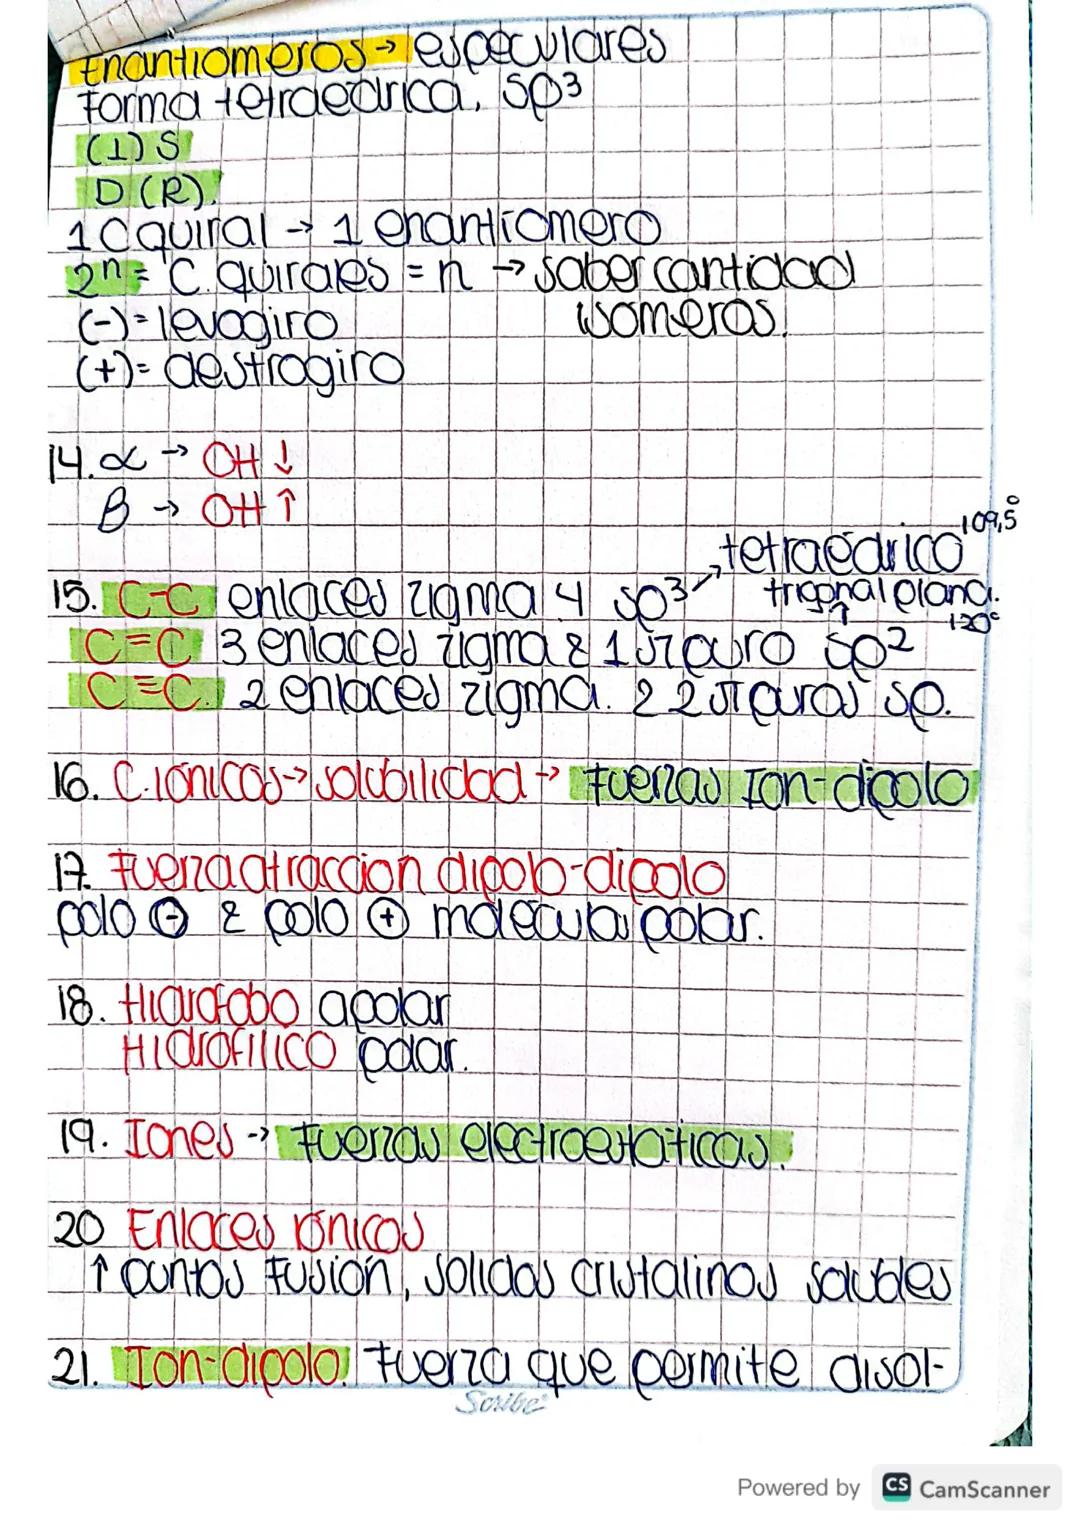 Enantiomeros → especulares
Forma tetraédrica, sp3
(L) S
D (R).
1 C quiral → 1 enantiomero
2^n = C. quirales = n → saber cantidad
isomeros.
(-) = levogiro
(+) = destrogiro
14. α → OH ↓
β → OH ↑
tetraédrico 109,5°
15. C-C enlaces zigma 4 sp3 trigonal plana.
120°
C=C 3 enlaces zigma & 1 π puro sp2
C≡C. 2 enlaces zigma. & 2 π puros sp.
16. C. iónicos → solubilidad → Fuerzas Ion-dipolo
17. Fuerza atraccion dipolo-dipolo
polo ⊖ & polo ⊕ molecula polar.
18. Hidrofobo apolar
Hidrofilico polar.
19. Iones → Fuerzas electroestaticas.
20 Enlaces iónicos
↑ puntos fusión, solidos cristalinos solubles
21. Ion-dipolo. Fuerza que permite disol-
Scribe
Powered by CS CamScanner